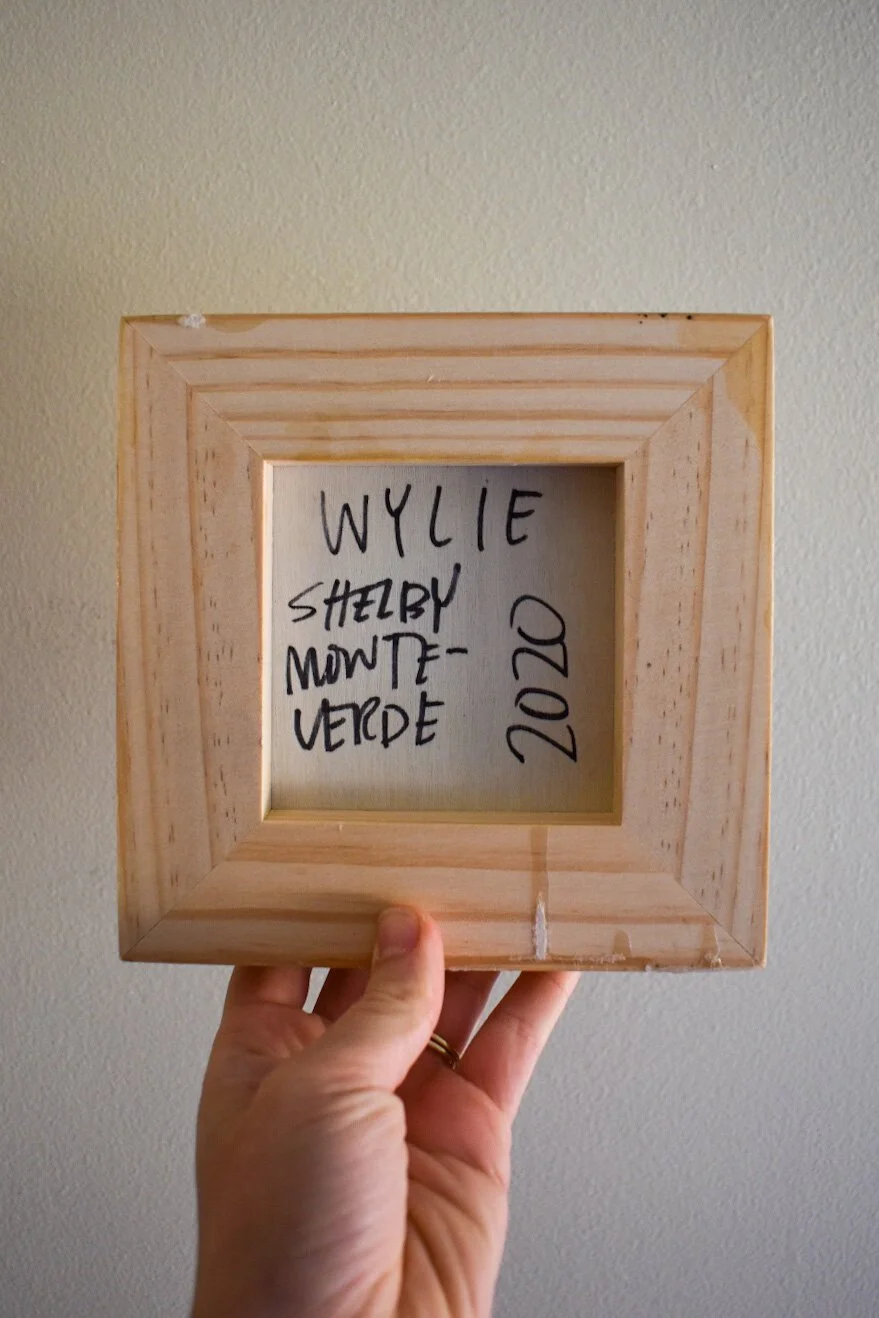 WYLIE
SHELBY
MONTE-
VERDE
2020